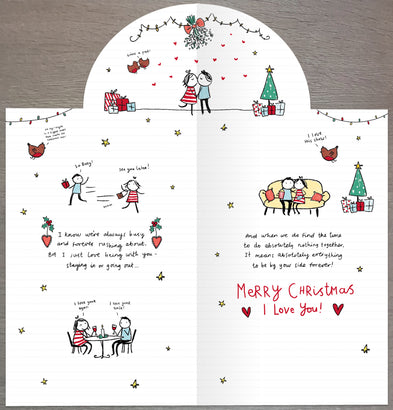 I love
this show!
So Busy!
See you Later!
I know we're always busy
and forever rushing about.
But I just love being with you -
staying in or going out...
And when we do find the time
to do absolutely nothing together,
It means absolutely everything
to be by your side forever!
MERRY CHRISTMAS
I Love You!
I love your
I love your